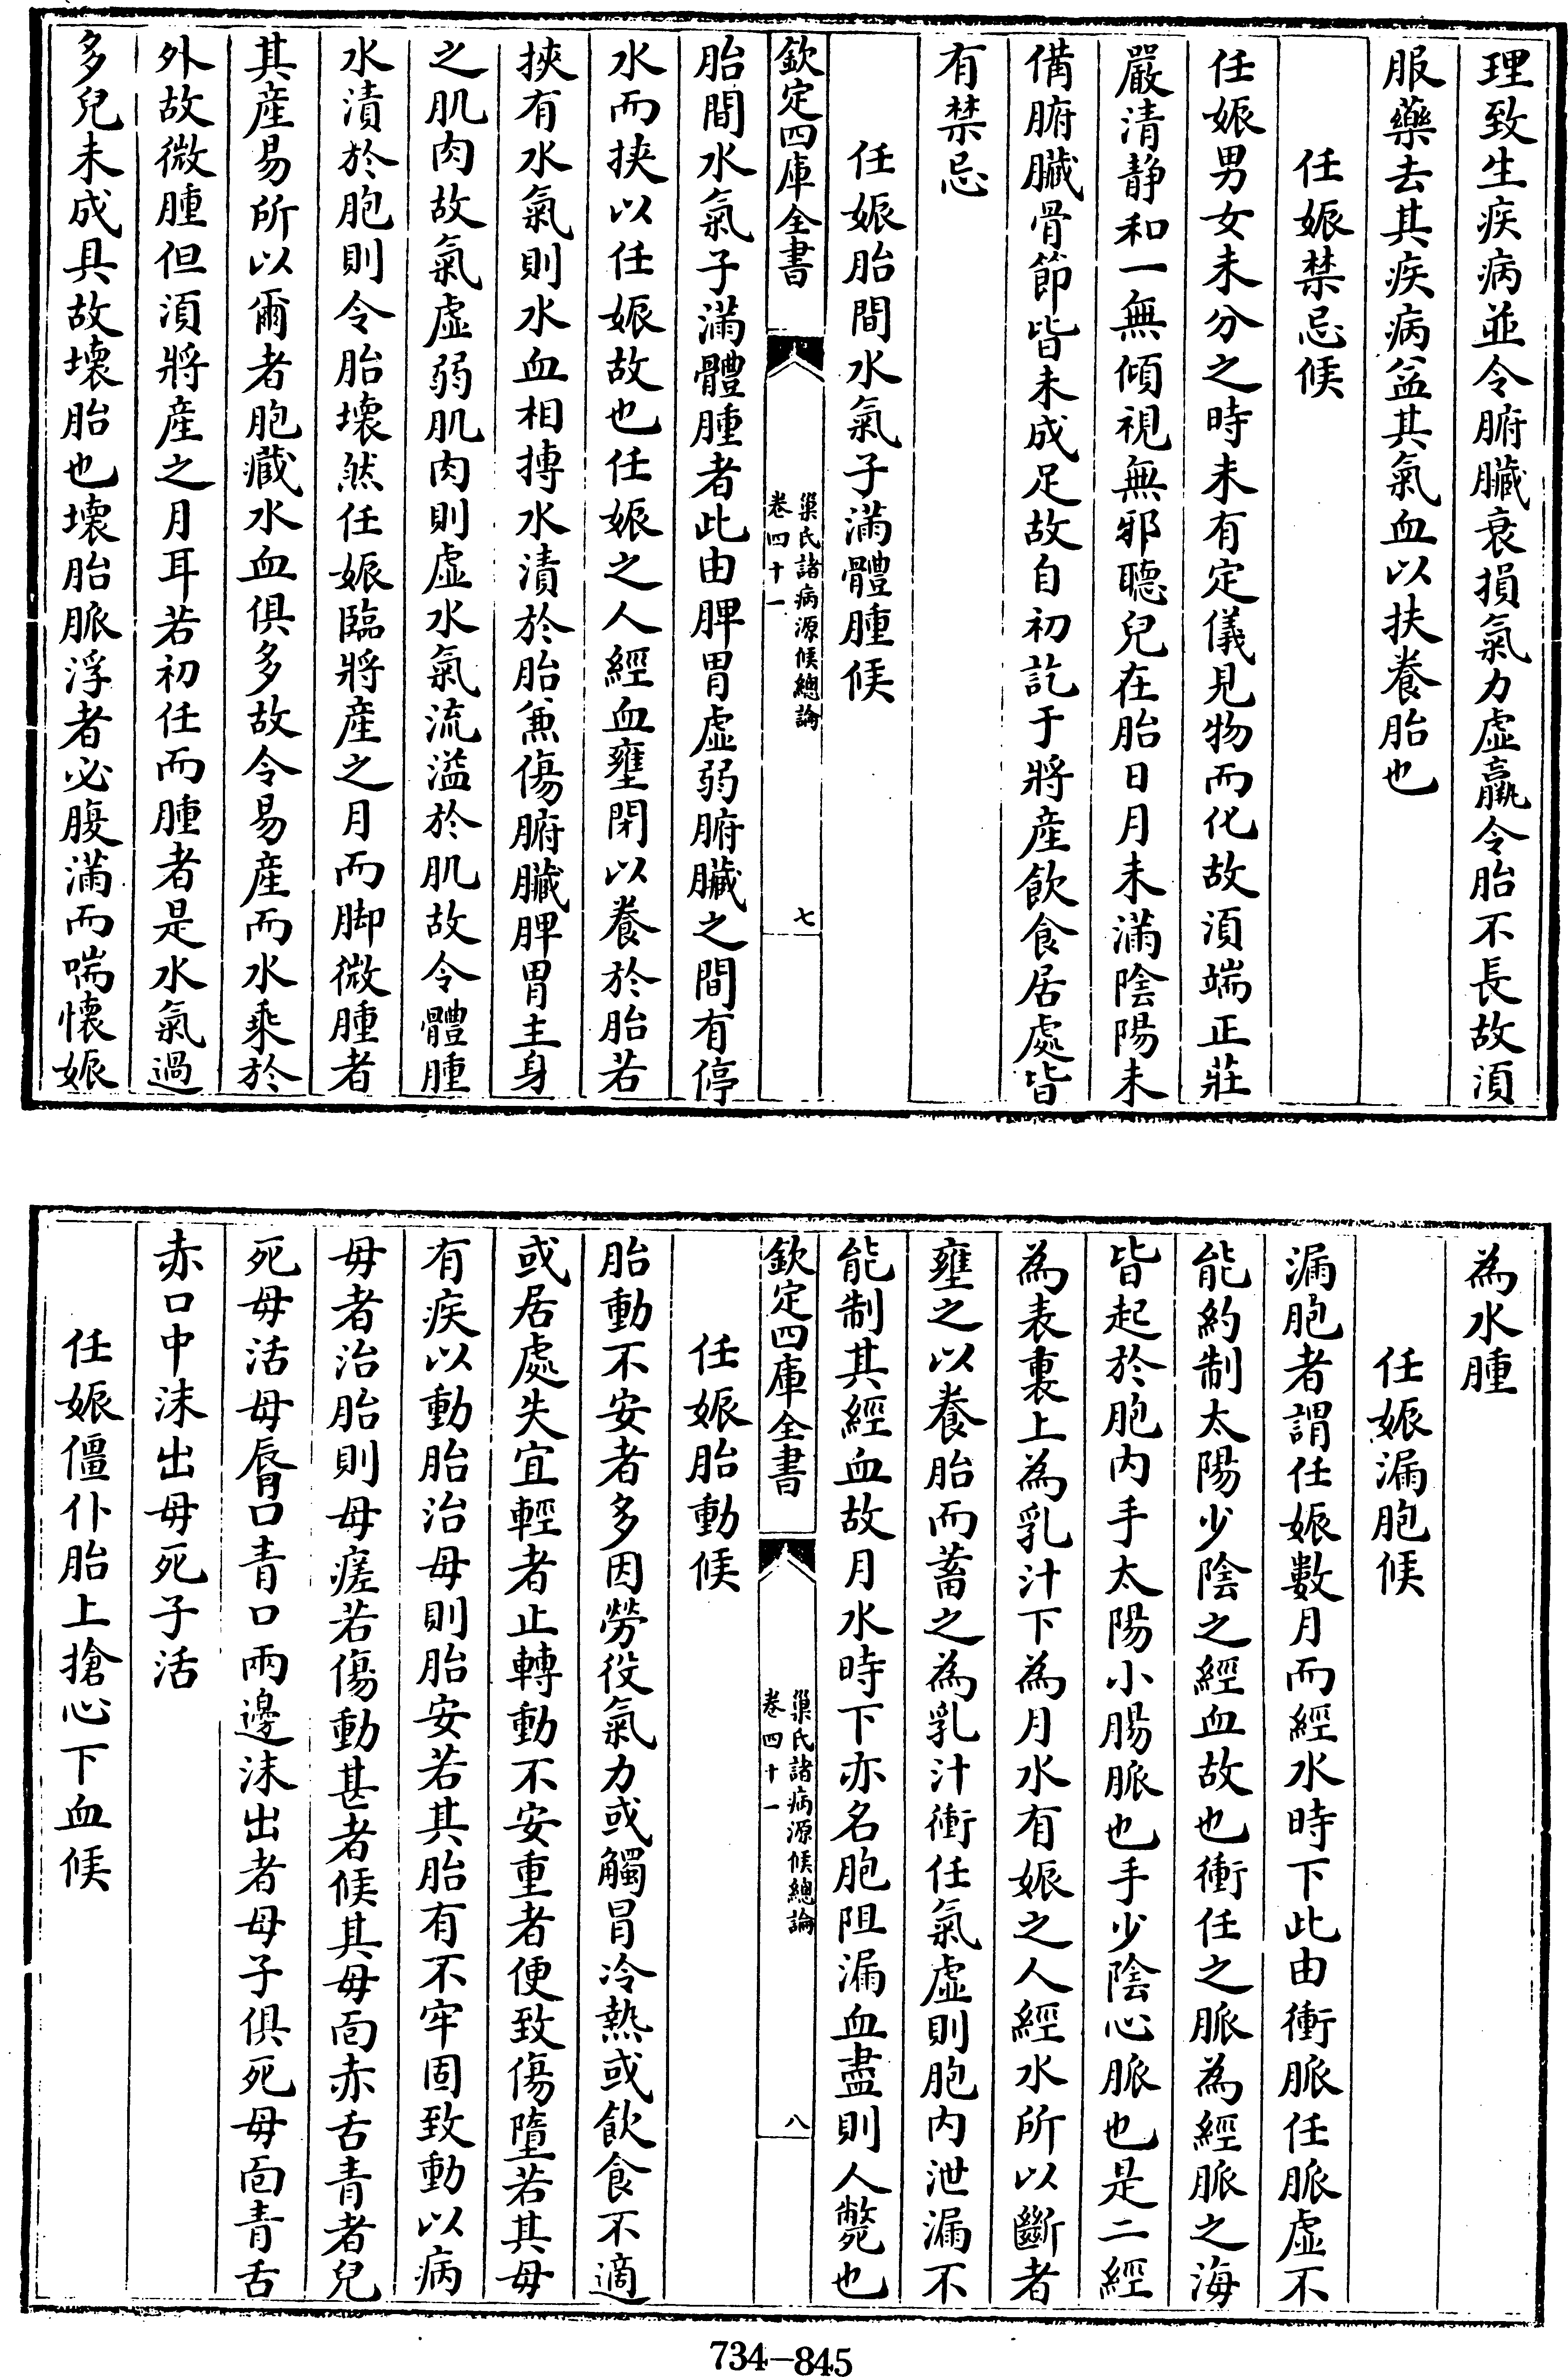 理致生疾病並令腑臟衰損氣力虛羸令胎不長故須
服藥去其疾病益其氣血以扶養胎也
任娠禁忌候
任娠男女未分之時未有定儀見物而化故須端正莊
嚴清静和一無傾視無邪聽兒在胎日月未滿陰陽未
備腑臟骨節皆未成足故自初訖于將產飲食居處皆
有禁忌
任娠胎間水氣子滿體腫候
欽定四庫全書
巢氏諸病源候總論
卷四十一
七
胎間水氣子滿體腫者此由脾胃虛弱腑臟之間有停
水而挾以任娠故也任娠之人經血壅閉以養於胎若
挾有水氣則水血相摶水漬於胎兼傷腑臟脾胃主身
之肌肉故氣虛弱肌肉則虛水氣流溢於肌故令體腫
水漬於胞則令胎壞然任娠臨將產之月而脚微腫者
其產易所以爾者胞藏水血俱多故令易產而水乘於
外故微腫但須將產之月耳若初任而腫者是水氣過
多兒未成具故壞胎也壞胎脈浮者必腹滿而喘懷娠
為水腫
任娠漏胞候
漏胞者謂任娠數月而經水時下此由衝脈任脈虛不
能約制太陽少陰之經血故也衝任之脈為經脈之海
皆起於胞内手太陽小腸脈也手少陰心脈也是二經
為表裏上為乳汁下為月水有娠之人經水所以斷者
壅之以養胎而蓄之為乳汁衝任氣虛則胞内泄漏不
能制其經血故月水時下亦名胞阻漏血盡則人斃也
欽定四庫全書
巢氏諸病源候總論
卷四十一
八
任娠胎動候
胎動不安者多因勞役氣力或觸冒冷熱或飲食不適
或居處失宜輕者止轉動不安重者便致傷墮若其母
有疾以動胎治母則胎安若其胎有不牢固致動以病
母者治胎則母瘥若傷動甚者候其母面赤舌青者兒
死母活母脣口青口兩邊沫出者母子俱死母面青舌
赤口中沫出母死子活
任娠僵仆胎上搶心下血候
734-845